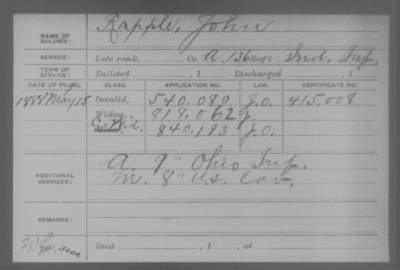 NAME OF SOLDIER: Kapple, John
SERVICE: Late rank, Co. A, 136 Reg't Ind. Inf.
TERM OF SERVICE: Enlisted , 1 Discharged , 1
DATE OF FILING. CLASS. APPLICATION NO. LAW. CERTIFICATE NO.
1888 May 15 Invalid, 540.080 J.O. 415.008
Widow, 818.062
C. Wid. 840.193 J.O.
ADDITIONAL SERVICES: A. 9" Ohio Inf.
M. 8" U.S. Cav.
REMARKS:
Died , 1 , at